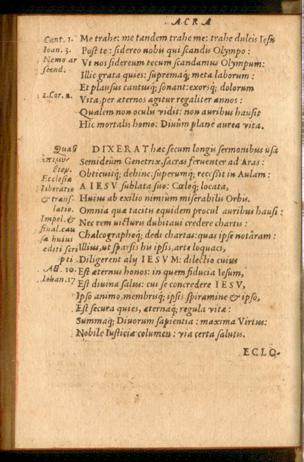 ACRA
Cant. 1. Me trahe: me tandem trahe me: trahe dulcis Iesu
Ioan. 3. Post te: sidereo nobis qui scandis Olympo:
Nemo ascend. Vt nos sidereum tecum scandamus Olympum:
Illic grata quies: supremaq; meta laborum:
Et plausus cantusq; sonant: exorsq; dolorum
2. Cor. 2. Vita, per æternos agitur regaliter annos:
Qualem non oculus vidit: non auribus hausit
Hic mortalis homo: Diuûm plane aurea vita.
Quasi DIXERAT hæc secum longis sermonibus vsa
Semideûm Genetrix, sacras feruenter ad Aras:
Epil. Obticuitq; dehinc: superumq; recessit in Aulam:
Ecclesiæ A IESV sublata suo: Cæloq; locata,
liberatio Huius ab exilio nimium miserabilis Orbis.
& translatio. Omnia quæ tacitus equidem procul auribus hausi:
Impel. & Nec rem visurus dubitaui credere chartis:
final. causa huius Chalcographoq; dedi chartas: quas ipse notâram:
editi scripti Illius, ut sparsit hu ipsis, arte loquaci,
Diligerent alij IESVM: dilectio cuius
Act. 10. Est æternus honos: in quem fiducia Iesum,
Iohan. 17 Est diuina salus: cui se concredere IESV,
Ipso animo, membrisq; ipsis spiramine & ipso,
Est secura quies, æternaq; regula vitæ:
Summaq; Diuorum sapientia: maxima Virtus:
Nobile Iusticiæ columen: via certa salutis.
ECLO-